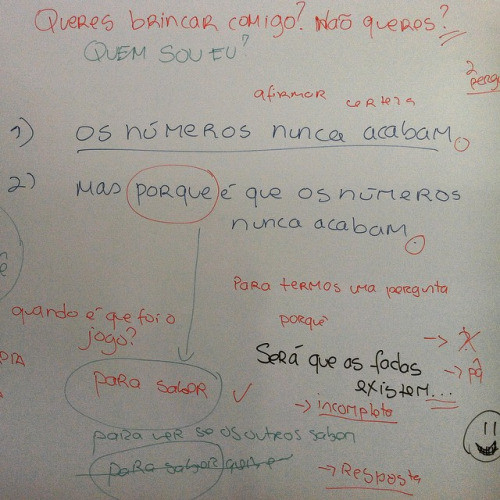 Queres brincar comigo? Não queres?
QUEM SOU EU?
2
afirmar certeza
1) OS NÚMEROS NUNCA ACABAM.
2) MAS PORQUE É QUE OS NÚMEROS
NUNCA ACABAM.
Para termos uma pergunta
porquê
quando é que foi o
jogo?
Será que as fadas
existem...
→ pq
para saber ✓
→ incompleta
para ver se os outros sabem
para saber
→ Resposta